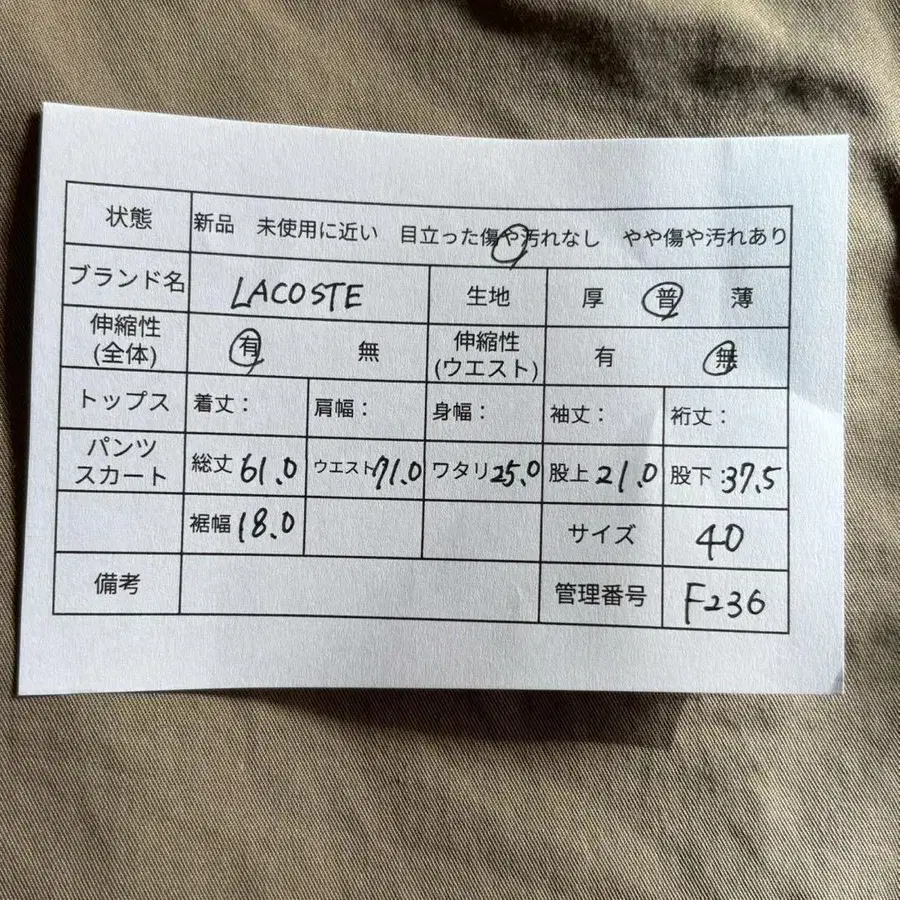 状態 新品 未使用に近い 目立った傷や汚れなし やや傷や汚れあり
ブランド名 LACOSTE 生地 厚 普 薄
伸縮性 有 無 伸縮性 有 無
(全体) (ウエスト)
トップス 着丈: 肩幅: 身幅: 袖丈: 裄丈:
パンツ
スカート 総丈 61.0 ウエスト 71.0 ワタリ 25.0 股上 21.0 股下:37.5
裾幅 18.0 サイズ 40
備考 管理番号 F236